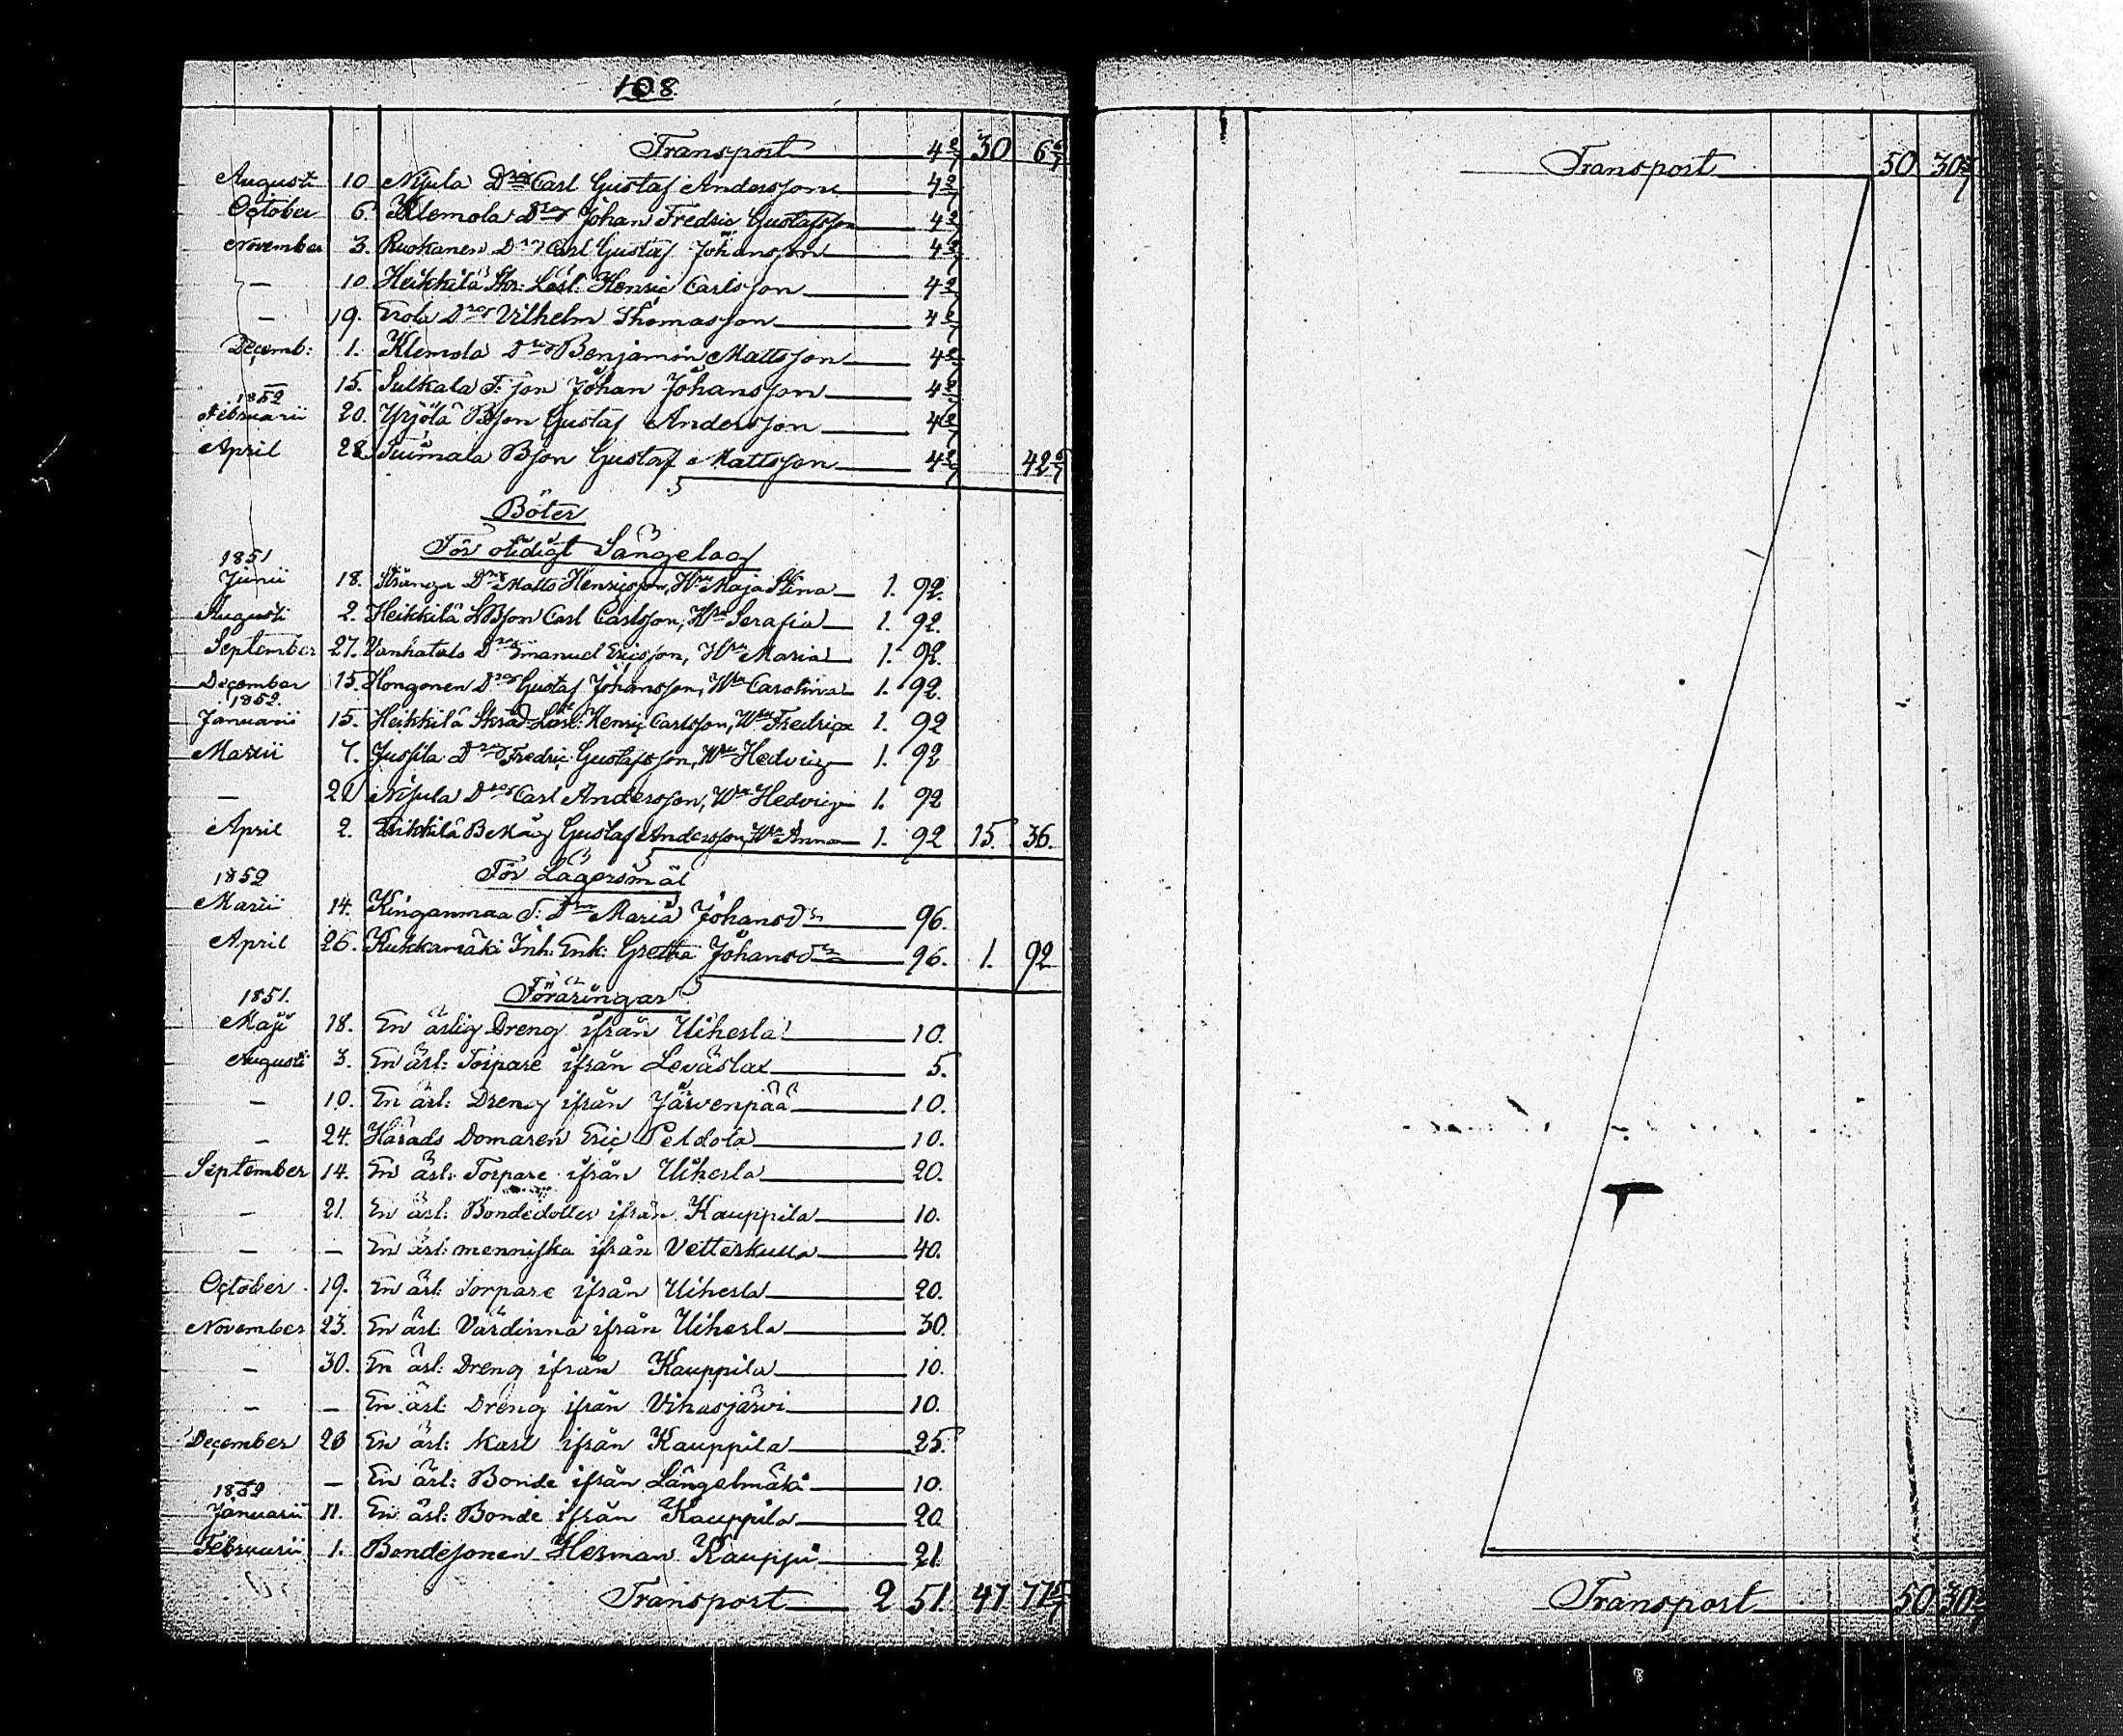 108
Transport 4 2/7 30 6 6/7
Augusti 10 Nijula Drng Carl Gustaf Andersson 4 2/7
October 6. Klemola Drng Johan Fredric Gustafsson 4 2/7
November 3. Ruokanen Drng Carl Gustaf Johansson 4 2/7
— 10. Heikkilä Skr: Lärl: Henric Carlsson 4 2/7
— 19. Erola Drng Vilhelm Thomasson 4 2/7
Decemb: 1. Klemola Drng Benjamin Mattsson 4 2/7
— 15. Sulkala T: son Johan Johansson 4 2/7
1852
Februarii 20. Yrjölä Bson Gustaf Andersson 4 2/7
April 28 Tuimala Bson Gustaf Mattsson 4 2/7 42 6/7
Böter
För otidigt Sängelag
1851
Junii 18. Stränga Drng Matts Henricsson, Hru Maja Stina 1. 92.
Augusti 2. Heikkilä LBson Carl Carlsson, Hru Serafia 1. 92.
September 27. Vanhatalo Drng Emanuel Ericsson, Hru Maria 1. 92.
December 15. Hongonen Drng Gustaf Johansson, Hru Carolina 1. 92.
1852.
Januarii 15. Heikkilä Skräd. Lärl: Henric Carlsson, Hru Fredrica 1. 92
Martii 7. Jussila Drng Fredric Gustafsson, Hru Hedvig 1. 92
— 21 Nijula Drng Carl Andersson, Hru Hedvig 1. 92
April 2. Heikkilä BMåg Gustaf Andersson, Hru Anna 1. 92 15. 36.
För Lägersmål
1852
Martii 14. Kinganmaa T: Drn Maria Johansdr 96.
April 26. Kukkamäki Inh: Enk: Gretha Johansdr 96. 1. 92
Föräringar
1851.
Maji 18. En ärlig Dreng ifrån Uiherla 10.
Augusti 3. En ärl: Torpare ifrån Leväslax 5.
— 10. En ärl: Dreng ifrån Järvenpää 10.
— 24. Härads Domaren Eric Peldola 10.
September 14. En ärl: Torpare ifrån Uiherla 20.
— 21. En ärl: Bondedotter ifrån Kauppila 10.
— — En ärl: menniska ifrån Vetterkulla 40.
October 19. En ärl: Torpare ifrån Uiherla 20.
November 23. En ärl: Värdinna ifrån Uiherla 30.
— 30. En ärl: Dreng ifrån Kauppila 10.
— — En ärl: Dreng ifrån Vihasjärvi 10.
December 26 En ärl: Karl ifrån Kauppila 25.
— En ärl: Bonde ifrån Längelmäki 10.
1852
Januarii 11. En ärl: Bonde ifrån Kauppila 20
Februarii 1. Bondesonen Herman Kauppi 21.
Transport 2 51. 47. 77 5/7
Transport 50 30 2/7
Transport 50 30 2/7